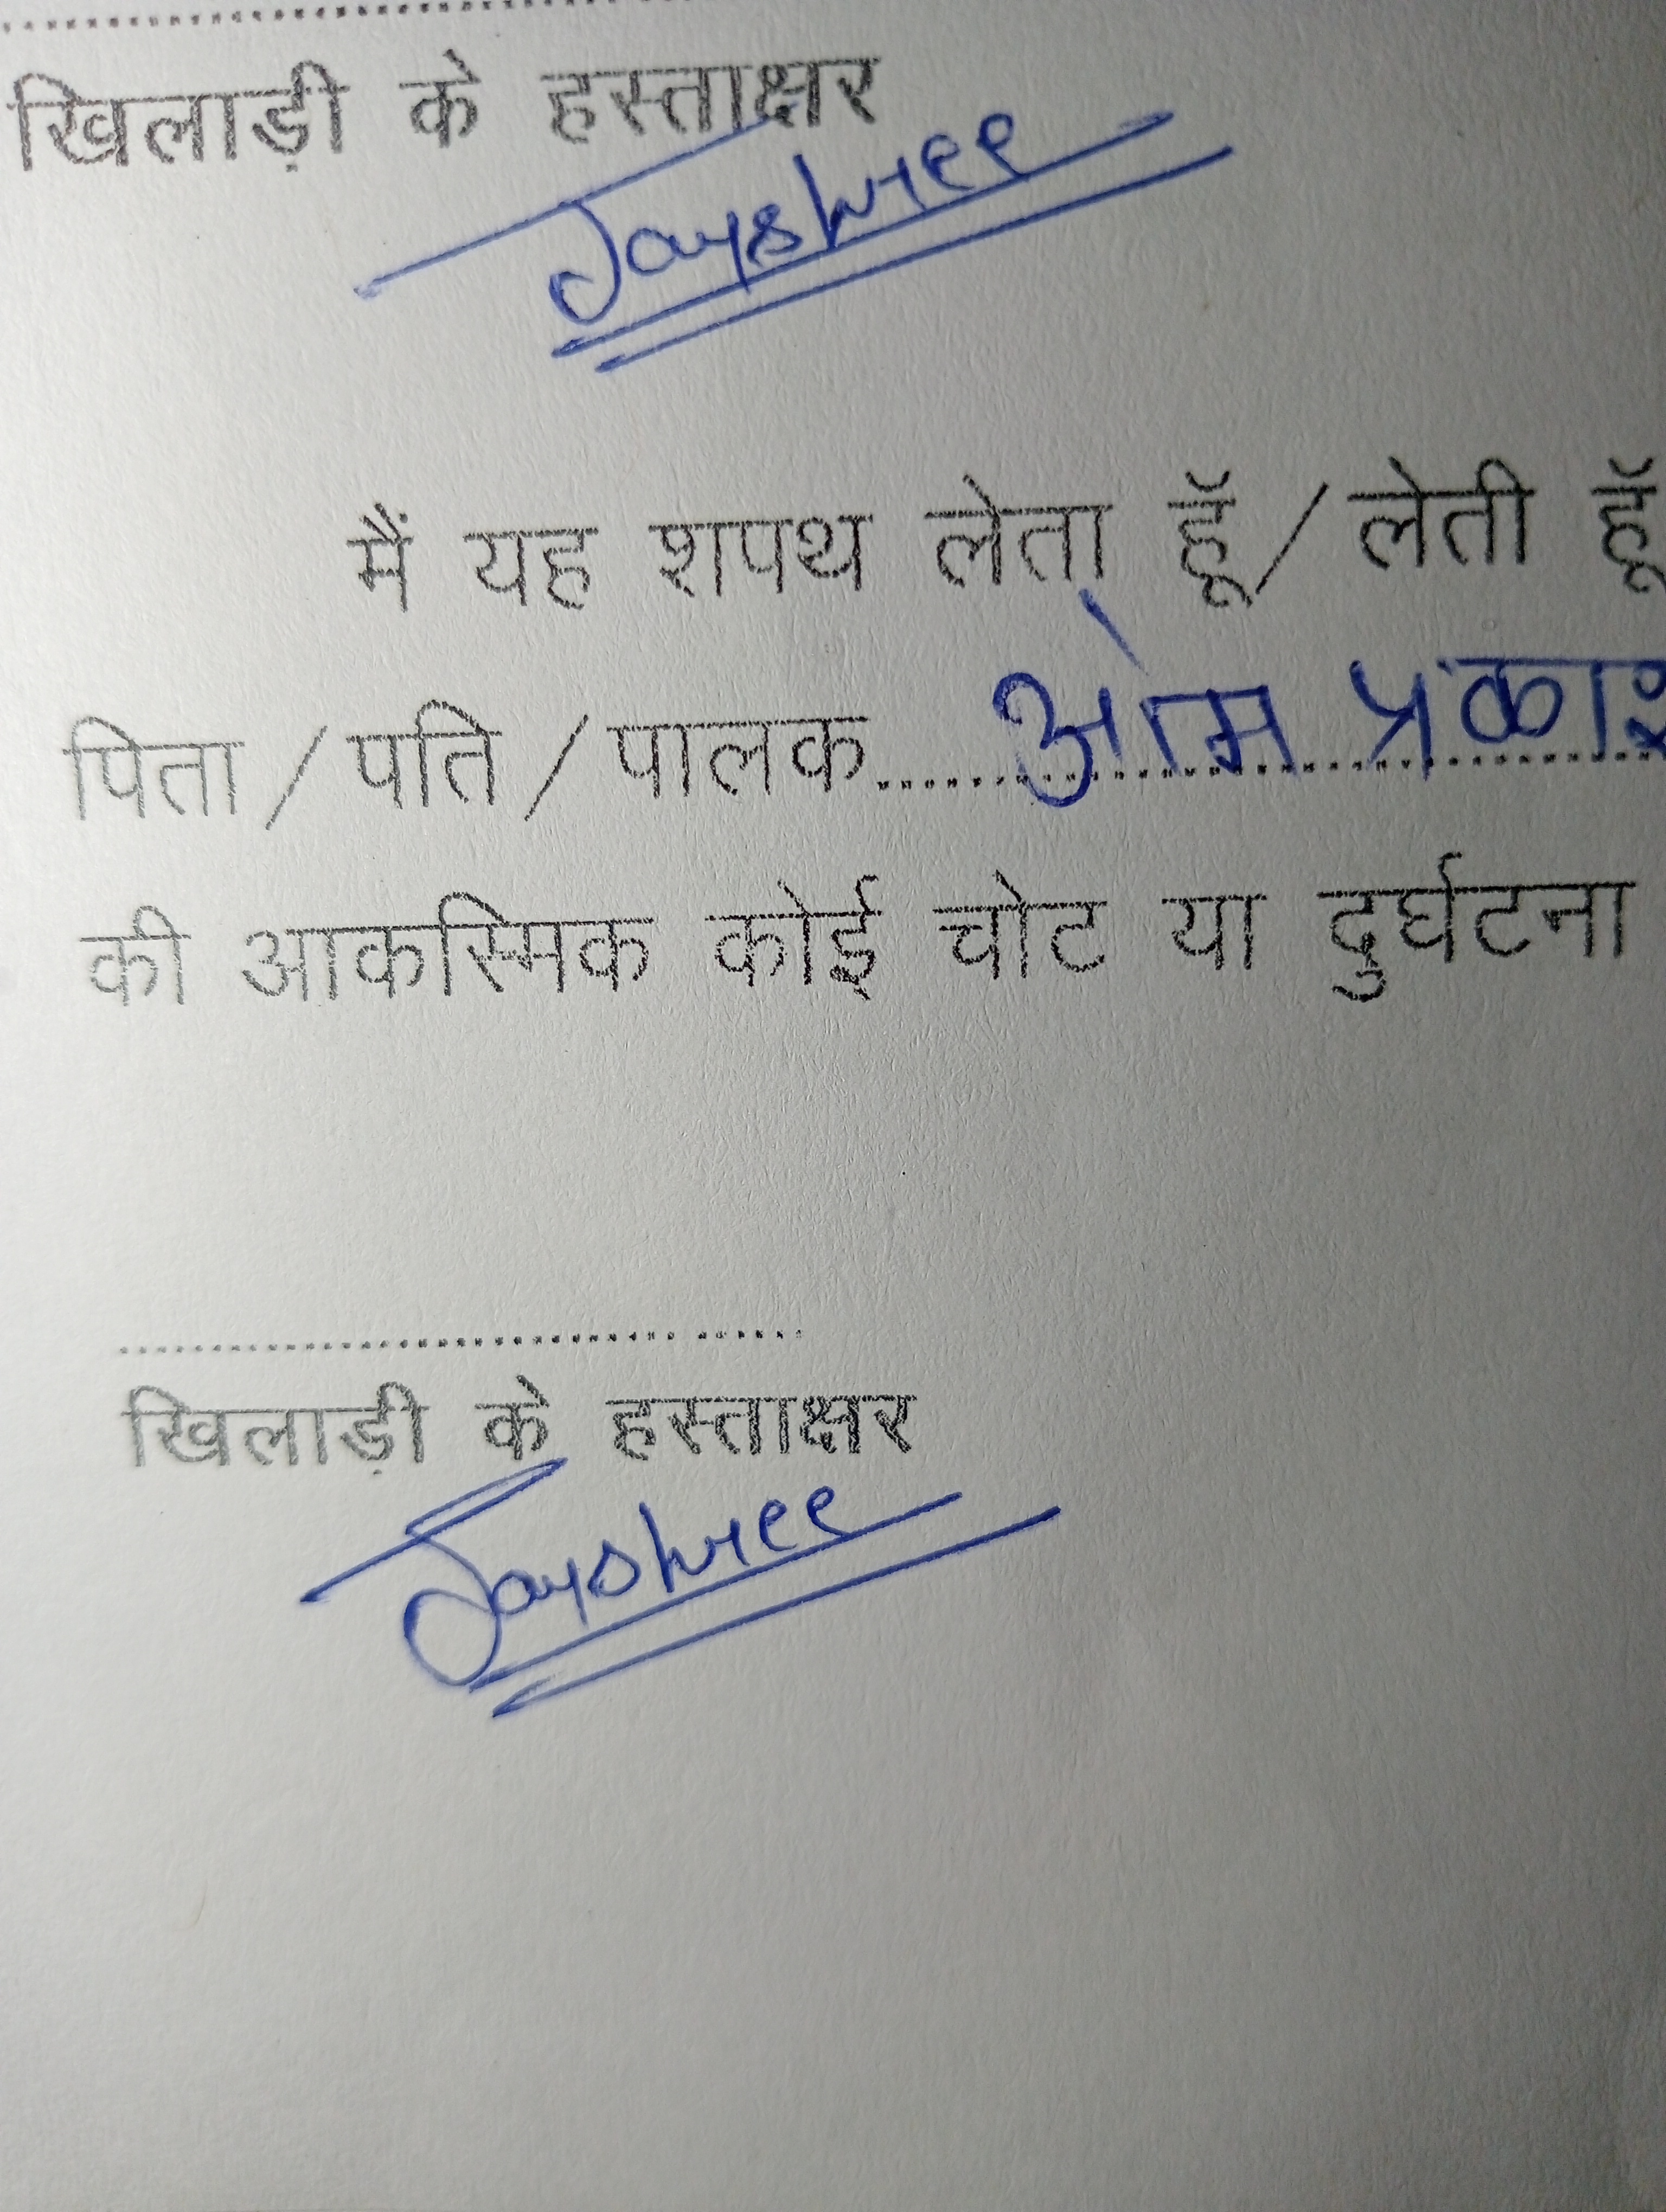 खिलाड़ी के हस्ताक्षर
Jayshree
मैं यह शपथ लेता हूँ/लेती हूँ
पिता/पति/पालक..........ओम प्रकाश
की आकस्मिक कोई चोट या दुर्घटना
खिलाड़ी के हस्ताक्षर
Jayshree